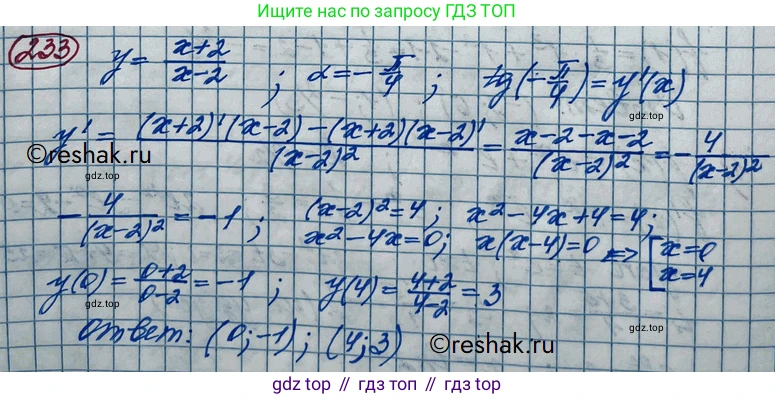 Ищите нас по запросу ГДЗ ТОП
233 y = (x+2)/(x-2) ; α = -π/4 ; tg(-π/4) = y'(x)
gdz.top
y' = ((x+2)'(x-2) - (x+2)(x-2)')/(x-2)² = (x-2-x-2)/(x-2)² = -4/(x-2)²
©reshak.ru
gdz.top
-4/(x-2)² = -1 ; (x-2)² = 4 ; x² - 4x + 4 = 4 ;
x² - 4x = 0 ; x(x-4) = 0 <=> [ x = 0
x = 4
y(0) = (0+2)/(0-2) = -1 ; y(4) = (4+2)/(4-2) = 3
gdz.top
gdz.top
Ответ: (0; -1) ; (4; 3)
©reshak.ru
gdz.top
gdz.top // гдз.топ // gdz.top